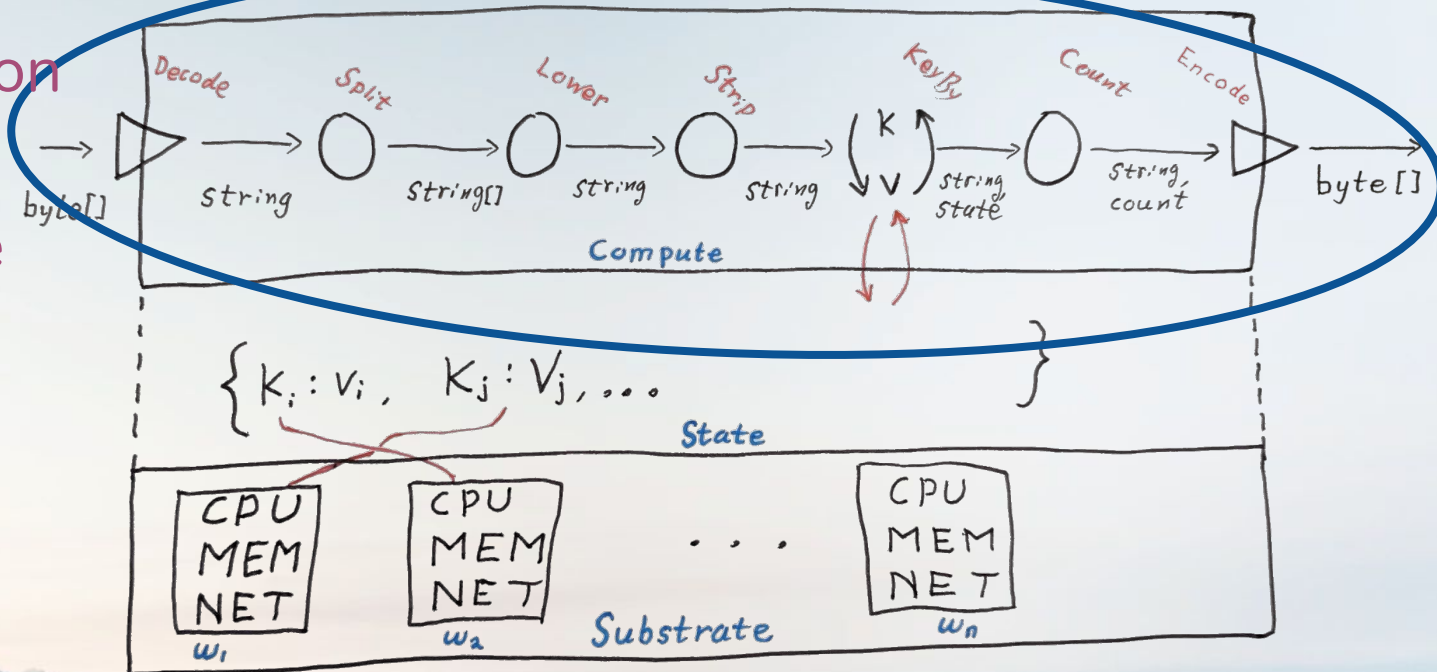 on
e
Decode Split Lower Strip KeyBy Count Encode
K
V
byte[] string string[] string string string, state string, count byte[]
Compute
{ Ki : Vi, Kj : Vj, ... }
State
CPU CPU . . . CPU
MEM MEM MEM
NET NET NET
w1 w2 Substrate wn